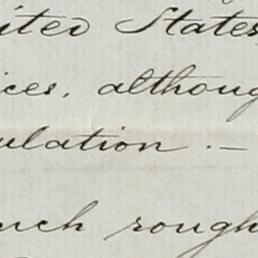 ited States
ices, althoug
ulation. —
uch rough